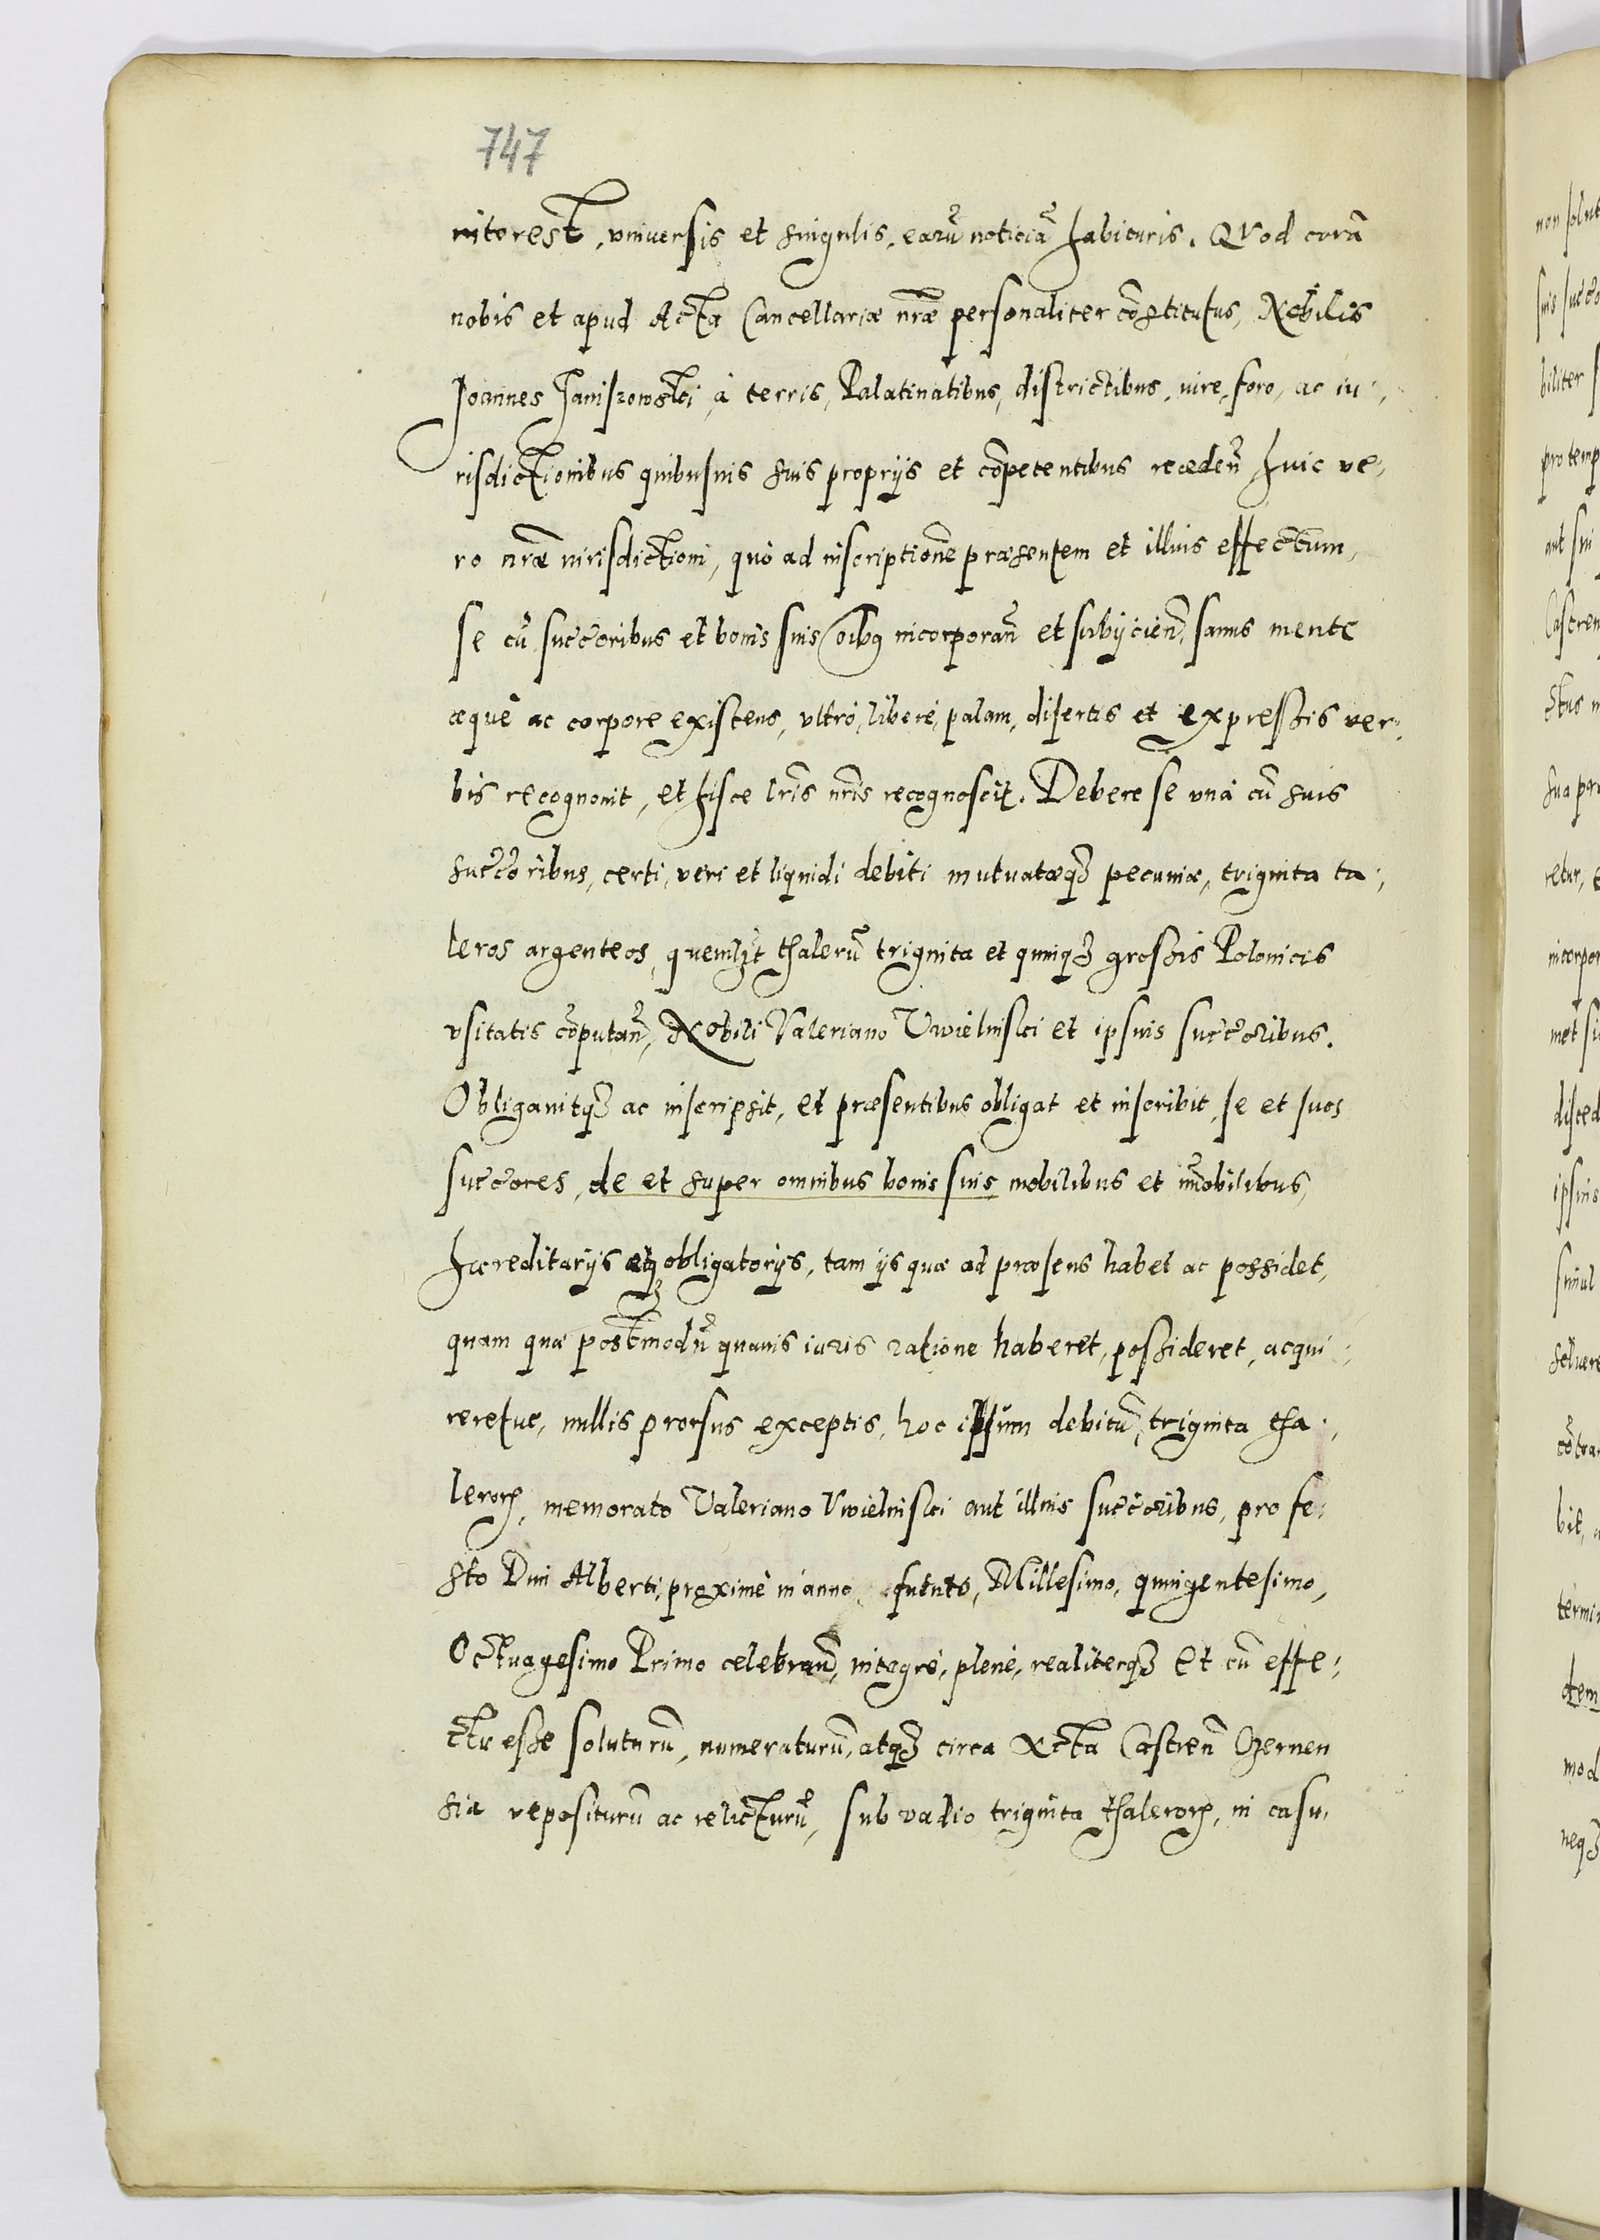 747
interest, vniuersis et singulis, earũ noticiã habituris. Quod corã
nobis et apud Acta Cancellariæ nr̃æ personaliter cõstitutus, Nobilis
Joannes Janiszowski, à terris, Palatinatibus, districtibus, iure, foro, ac iu-
risdictionibus quibusuis suis proprijs et cõpetentibus recedeñ huic ve-
ro nr̃æ iurisdictioni, quò ad inscriptionẽ præsentem et illius effectum,
se cũ succoribus et bonis suis oĩbq incorporañ et subijcieñ, sanus mente
æquè ac corpore existens, vltrò, liberè, palam, disertis et expressis ver-
bis recognouit, et hisce lr̃is nr̃is recognoscit. Debere se vnà cũ suis
succoribus, certi, veri et liquidi debiti mutuatæqʒ pecuniæ, triginta ta-
leros argenteos, quemlʒt thalerũ triginta et quinqʒ grossis Polonicis
vsitatis cõputañ, Nobili Valeriano Vwielinski et ipsius succoribus.
Obligauitqʒ ac inscripsit, et præsentibus obligat et inscribit se et suos
succores, de et super omnibus bonis suis mobilibus et im̃obilibus,
hæreditarijs atqʒ obligatorijs, tam ijs quæ ad præsens habet ac possidet,
quam quæ postmodũ quauis iuris ratione haberet, possideret, acqui-
reretue, nullis prorsus exceptis, hoc ipsum debitũ triginta tha-
lerorꝝ, memorato Valeriano Vwielinski aut illius succoribus, pro fe-
sto Diui Alberti, proximè in anno futuro, Millesimo, quingentesimo,
Octuagesimo Primo celebrañ, integrè, plenè, realiterqʒ Et cũ effe-
ctu esse soluturũ, numeraturũ, atqʒ circa Acta Castreñ Czernen
sia repositurũ ac relicturũ, sub vadio triginta thalerorꝝ, in casu,